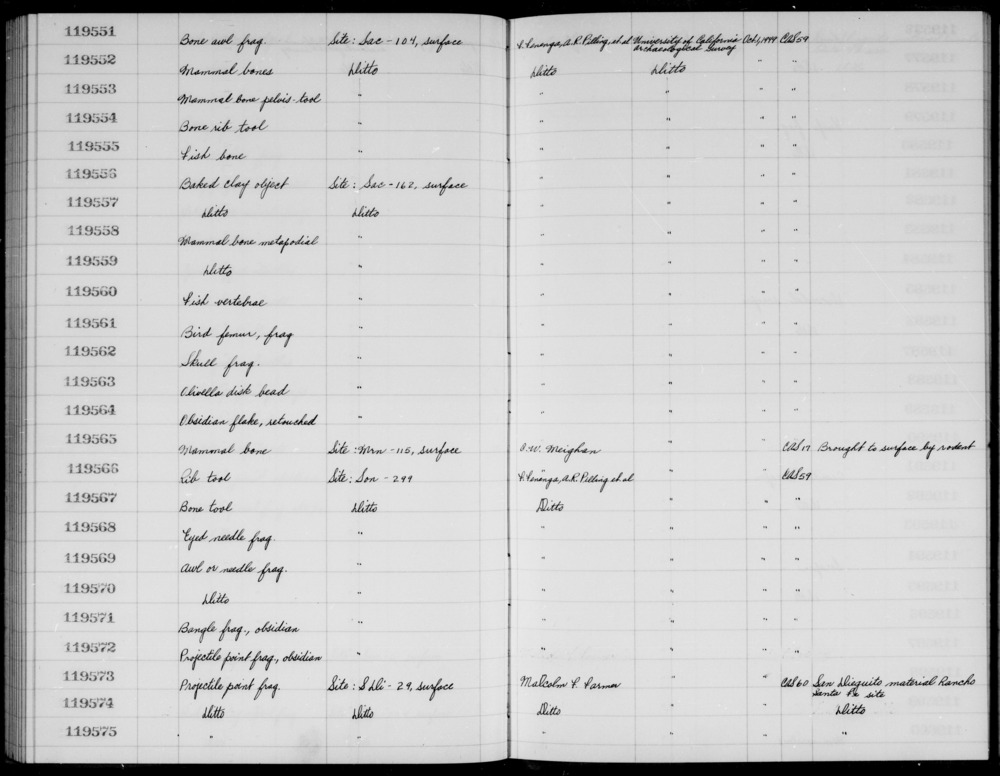 119551 Bone awl frag. Site: Sac - 104, surface F. Fenenga, A.R. Pilling, et al University of California Oct. 1, 1949 CAS 59
Archaeological Survey
119552 Mammal bones Ditto Ditto Ditto " "
119553 Mammal bone pelvis-tool " " " " "
119554 Bone rib tool " " " " "
119555 Fish bone " " " " "
119556 Baked clay object Site: Sac - 162, surface " " " "
119557 Ditto Ditto " " " "
119558 Mammal bone metapodial " " " " "
119559 Ditto " " " " "
119560 Fish vertebrae " " " " "
119561 Bird femur, frag " " " " "
119562 Skull frag. " " " " "
119563 Olivella disk bead " " " " "
119564 Obsidian flake, retouched " " " " "
119565 Mammal bone Site: Mrn - 115, surface C.W. Meighan " " CAS 17 Brought to surface by rodent
119566 Rib tool Site: Son - 299 F. Fenenga, A.R. Pilling et al " " CAS 59
119567 Bone tool Ditto Ditto " " "
119568 Eyed needle frag. " " " " "
119569 Awl or needle frag. " " " " "
119570 Ditto " " " " "
119571 Bangle frag., obsidian " " " " "
119572 Projectile point frag., obsidian " " " " "
119573 Projectile point frag. Site: SDi - 29, surface Malcolm F. Farmer " " CAS 60 San Dieguito material Rancho
Santa Fe site
119574 Ditto Ditto Ditto " " " Ditto
119575 " " " " " " "